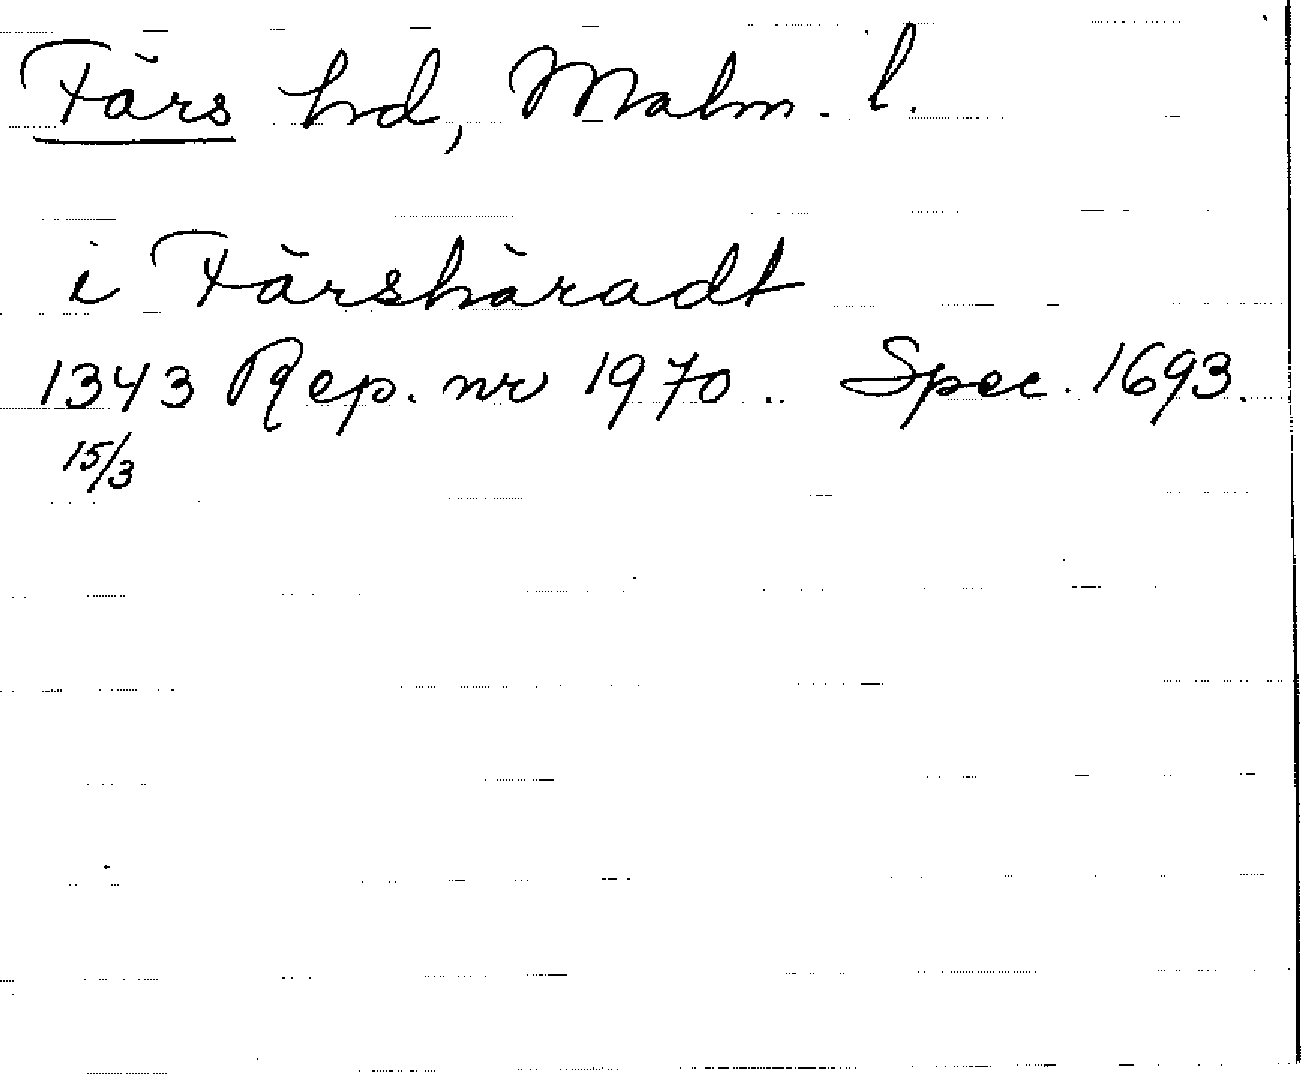 Färs hd, Malm. l.
i Färshäradt
1343 Rep. nr 1970. Spec. 1693.
15/3